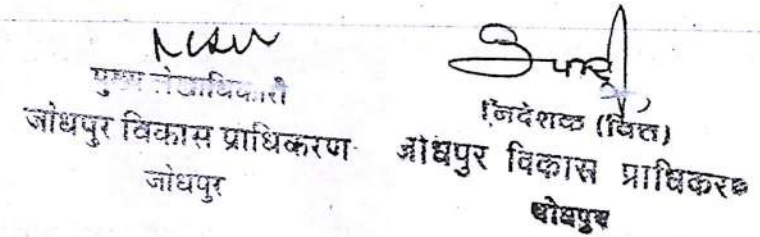 मुख्य लेखाधिकारी
जोधपुर विकास प्राधिकरण
जोधपुर
निदेशक (वित्त)
जोधपुर विकास प्राधिकरण
जोधपुर